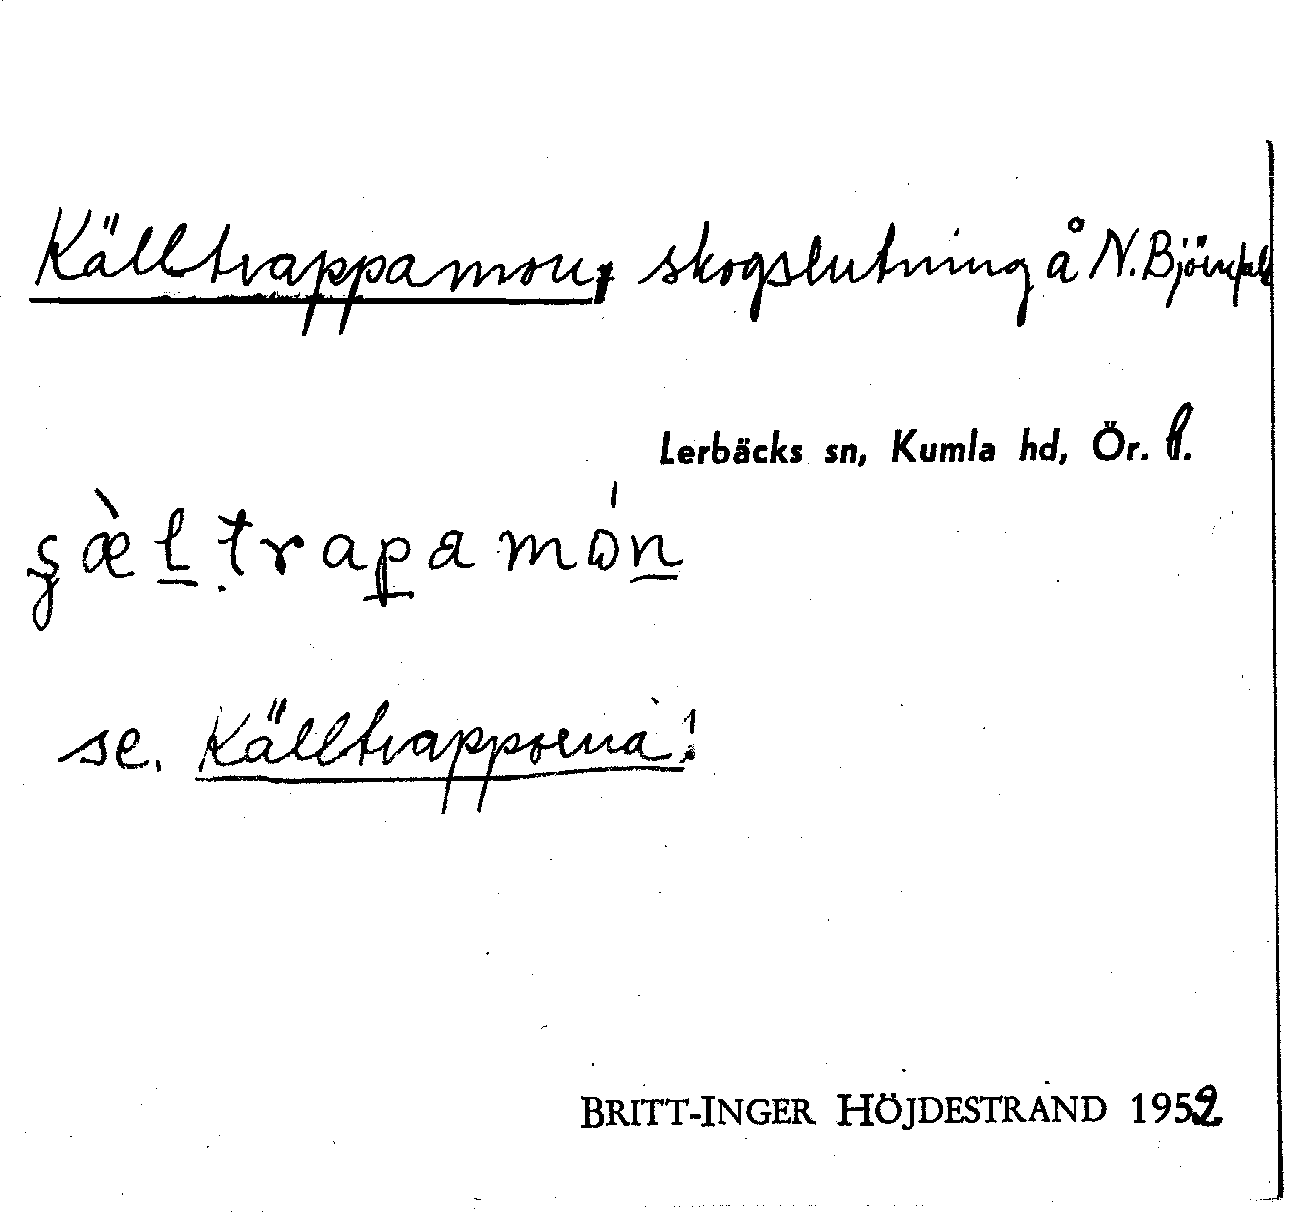 Källtrappamon, skogslutning å N. Björnfal
Lerbäcks sn, Kumla hd, Ör. l.
se. Källtrapporna!
BRITT-INGER HÖJDESTRAND 1952